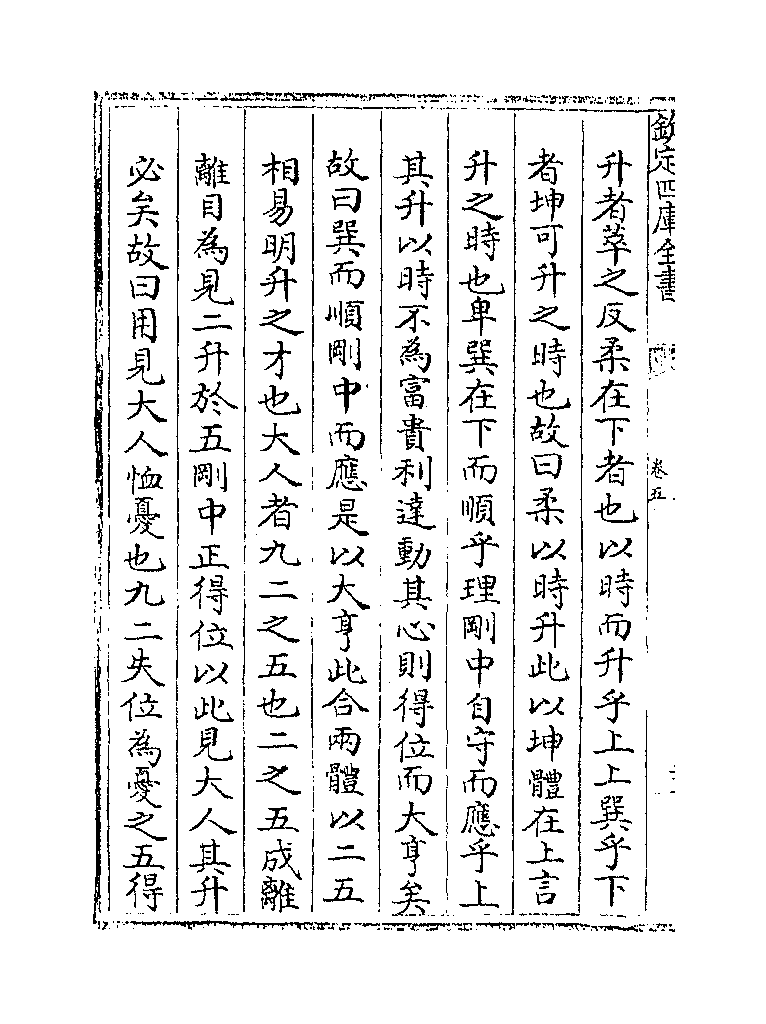 欽定四庫全書
卷五
升者萃之反柔在下者也以時而升乎上上巽乎下
者坤可升之時也故曰柔以時升此以坤體在上言
升之時也卑巽在下而順乎理剛中自守而應乎上
其升以時不為富貴利達動其心則得位而大亨矣
故曰巽而順剛中而應是以大亨此合兩體以二五
相易明升之才也大人者九二之五也二之五成離
離目為見二升於五剛中正得位以此見大人其升
必矣故曰用見大人恤憂也九二失位為憂之五得